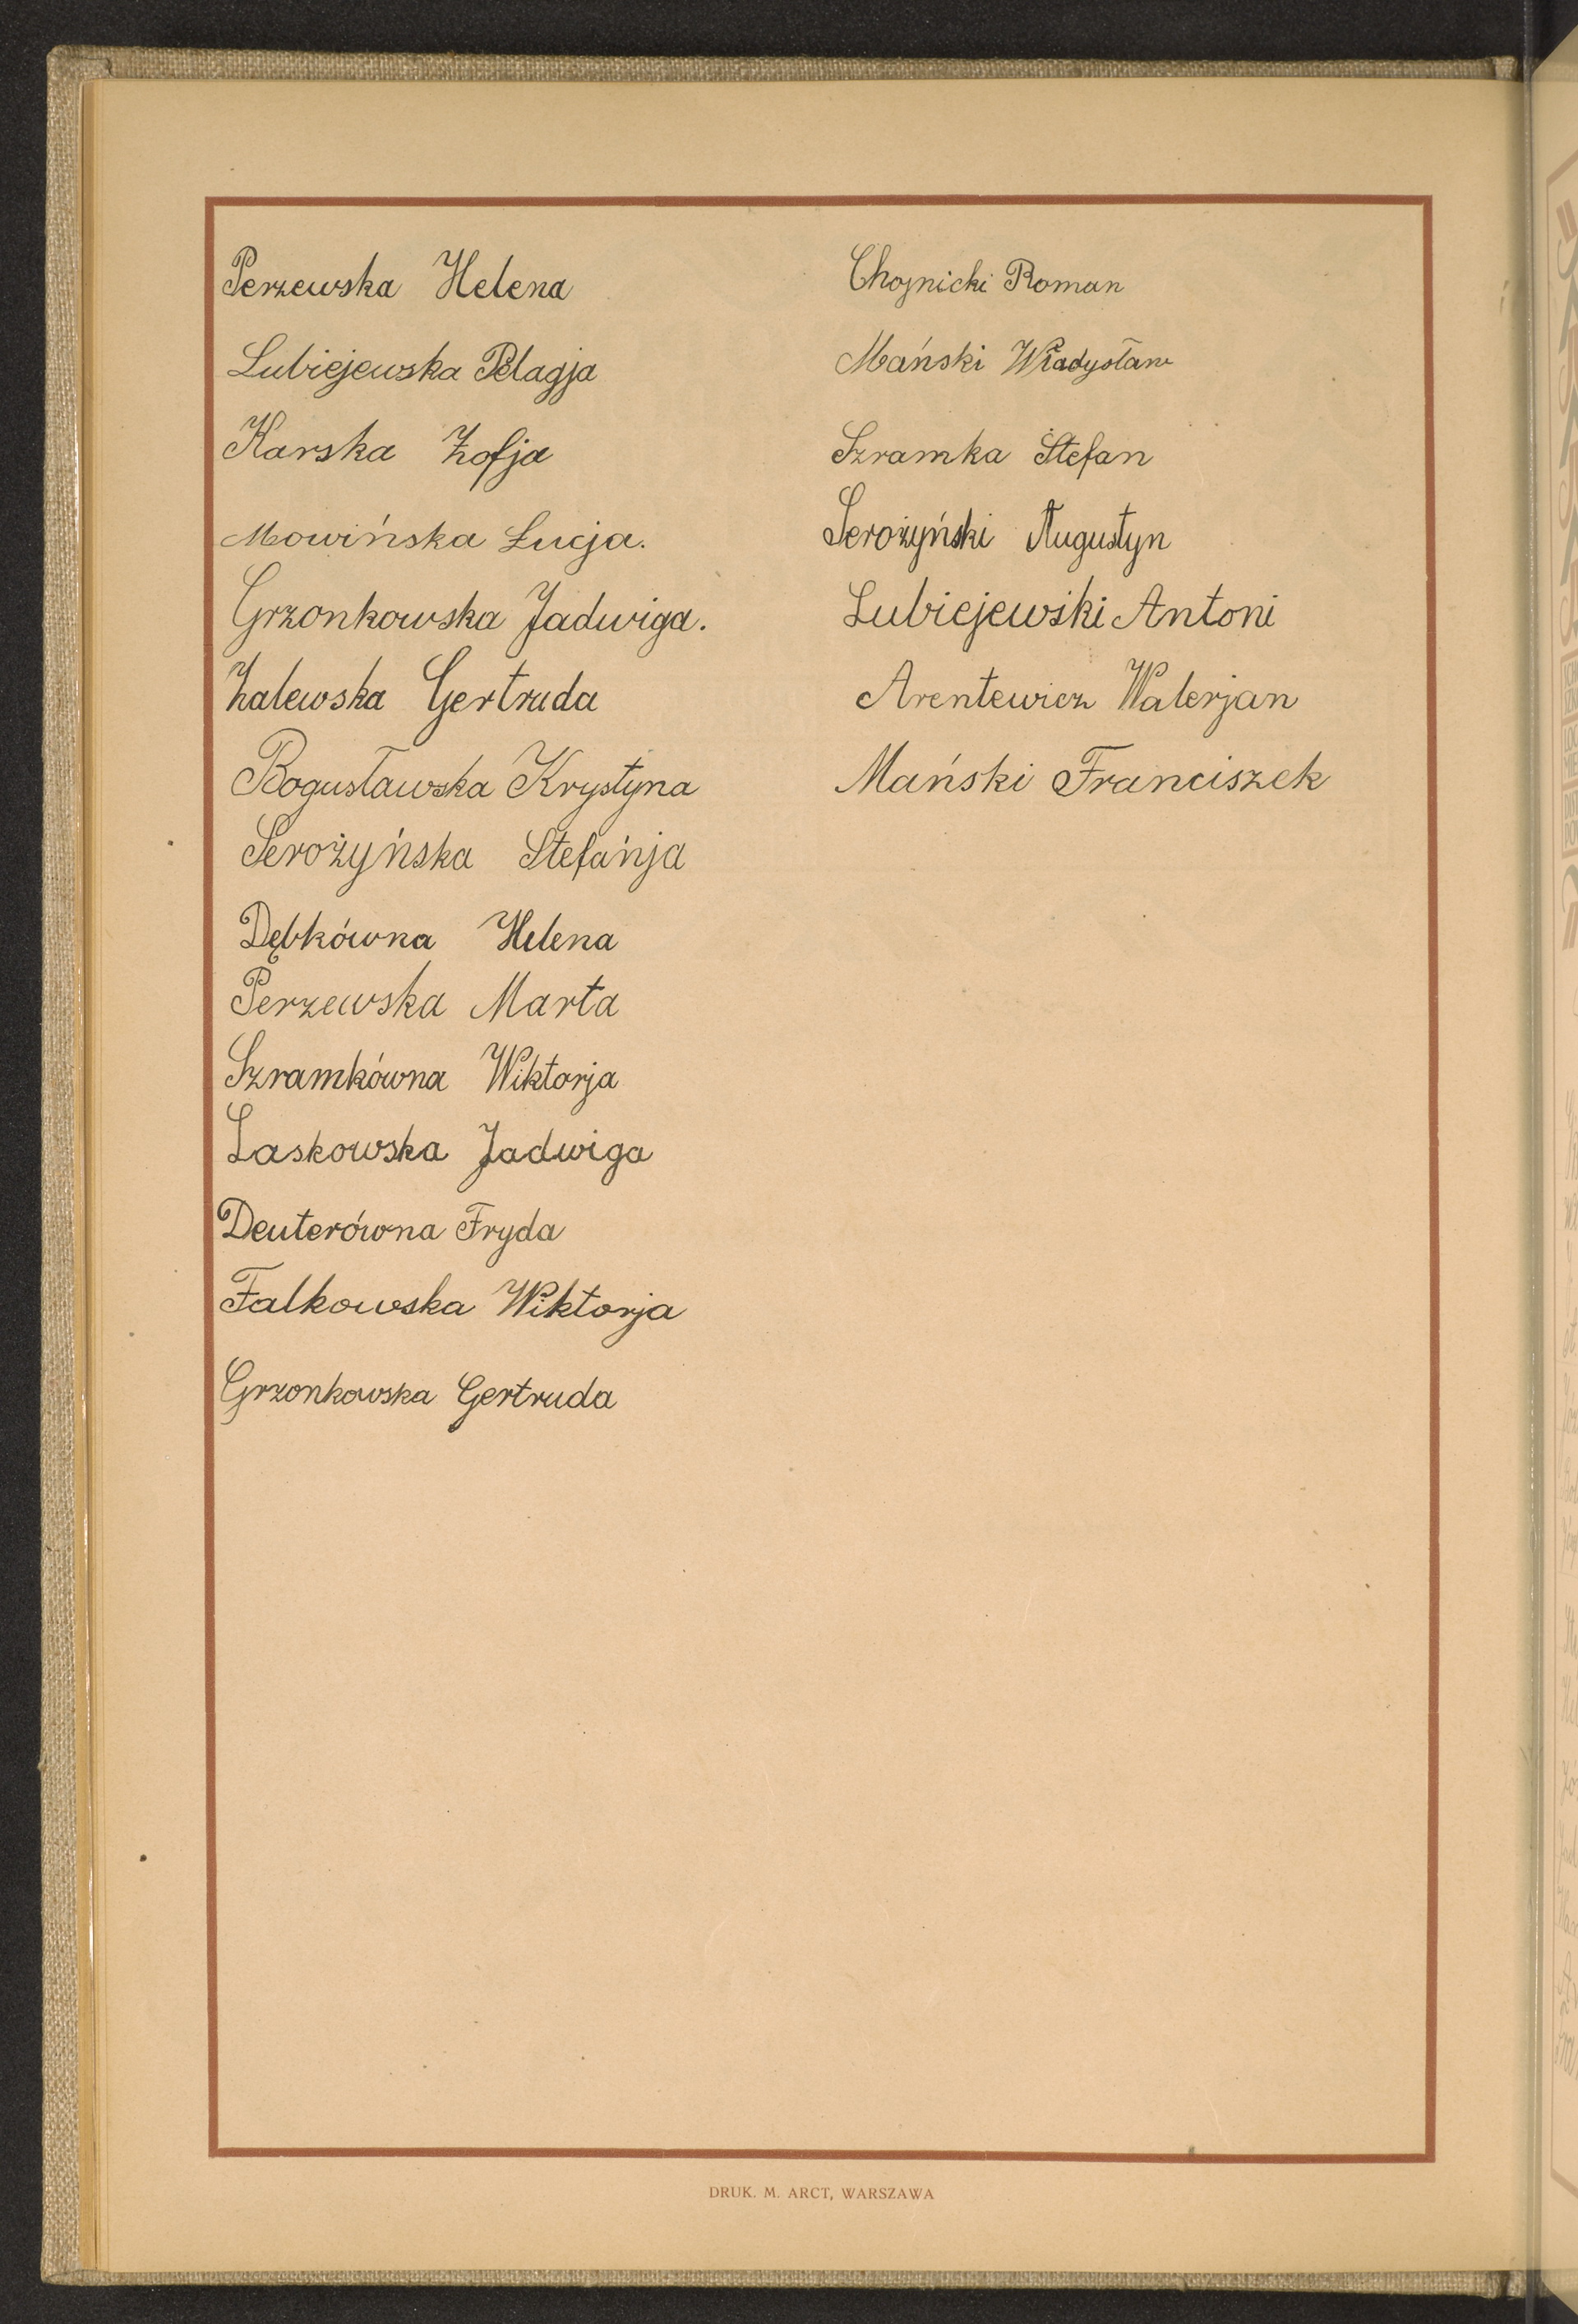 Perzewska Helena
Lubiejewska Pelagja
Karska Zofja
Mowińska Łucja.
Grzonkowska Jadwiga.
Zalewska Gertruda
Bogusławska Krystyna
Serożyńska Stefańja
Dębkówna Helena
Perzewska Marta
Szramkówna Wiktorja
Laskowska Jadwiga
Deuterówna Fryda
Falkowska Wiktorja
Grzonkowska Gertruda
Chojnicki Roman
Mański Władysław
Szramka Stefan
Serożyński Augustyn
Lubiejewski Antoni
Arentewicz Walerjan
Mański Franciszek
DRUK. M. ARCT, WARSZAWA